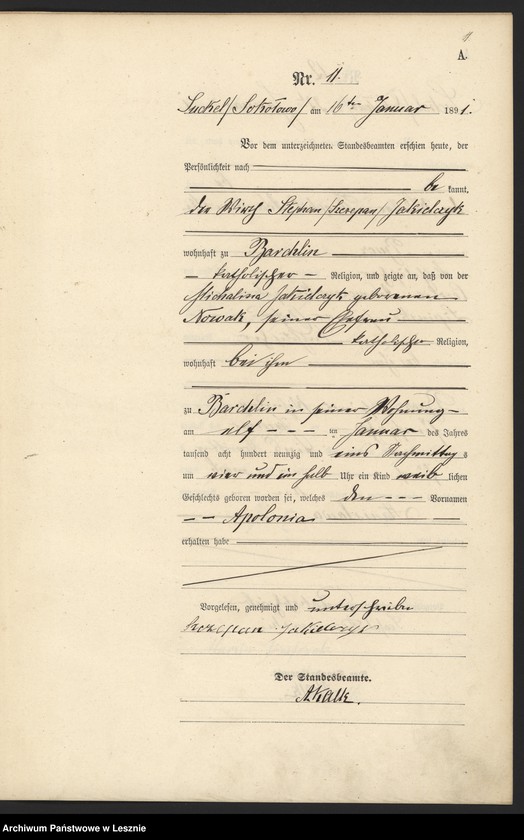 11
A.
Nr. 11.
Luckel/Sokołowo/ am 16ten Januar 1891.
Vor dem unterzeichneten Standesbeamten erschien heute, der
Persönlichkeit nach
be kannt,
der Wirth Stephan/Szczepan/ Jakielczyk
wohnhaft zu Bardelin
katholischer Religion, und zeigte an, daß von der
Michalina Jakielczyk geborenen
Nowak, seiner Ehefrau
katholischer Religion,
wohnhaft bei ihm
zu Bardelin in seiner Wohnung
am elf ten Januar des Jahres
tausend acht hundert neunzig und eins Nachmittags
um vier und ein halb Uhr ein Kind weib lichen
Geschlechts geboren worden sei, welches den Vornamen
Apolonia
erhalten habe
Vorgelesen, genehmigt und unterschrieben
Szczepan Jakielczyk
Der Standesbeamte.
AKalk.
Archiwum Państwowe w Lesznie